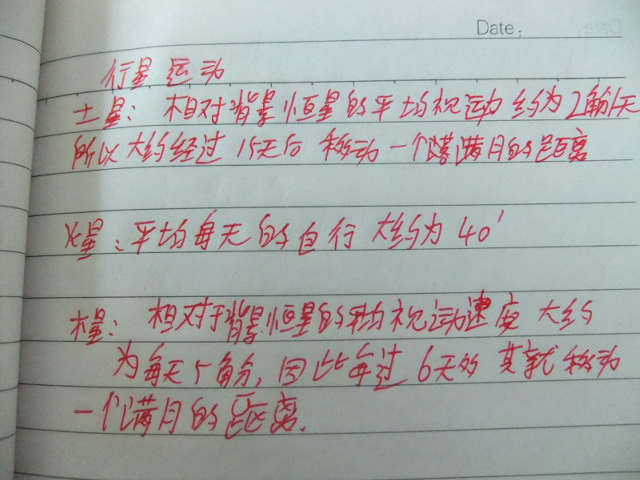 Date:
行星运动
土星: 相对背景恒星的平均视运动 约为2角分/天
所以大约经过15天后 移动一个满月的距离
火星: 平均每天的自行大约为40′
木星: 相对于背景恒星的平均视运动速度 大约
为每天5角分, 因此每过6天的 其就移动
一个满月的距离.